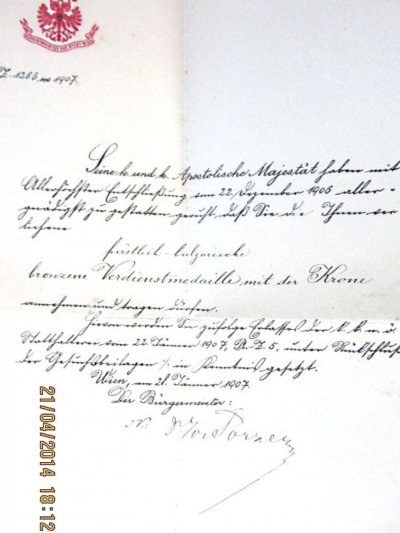 BÜRGERMEISTER DER STADT WIEN
Z. 1266 ex 1907.
Seine k. und k. Apostolische Majestät haben mit
Allerhöchster Entschließung vom 22. Dezember 1906 aller-
gnädigst zu gestatten geruht, daß Sie die Ihnen ver-
liehene
fürstlich-bulgarische
bronzene Verdienstmedaille mit der Krone
annehmen und tragen dürfen.
Hievon werden Sie zufolge Erlasses der k. k. n. ö.
Statthalterei vom 22. Jänner 1907, Pr. Z. 5, unter Rückschluß
der Gesuchsbeilagen ⁒ in Kenntnis gesetzt.
Wien, am 21. Jänner 1907.
Der Bürgermeister:
21/04/2014 18:12